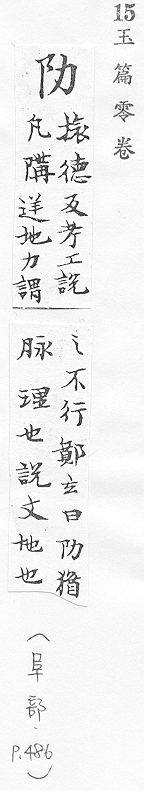 15
玉篇零卷
阞
德反考工說
凡逆地力謂
之不行鄭玄曰阞猶
脉理也說文地也
(阜部,
p.486)